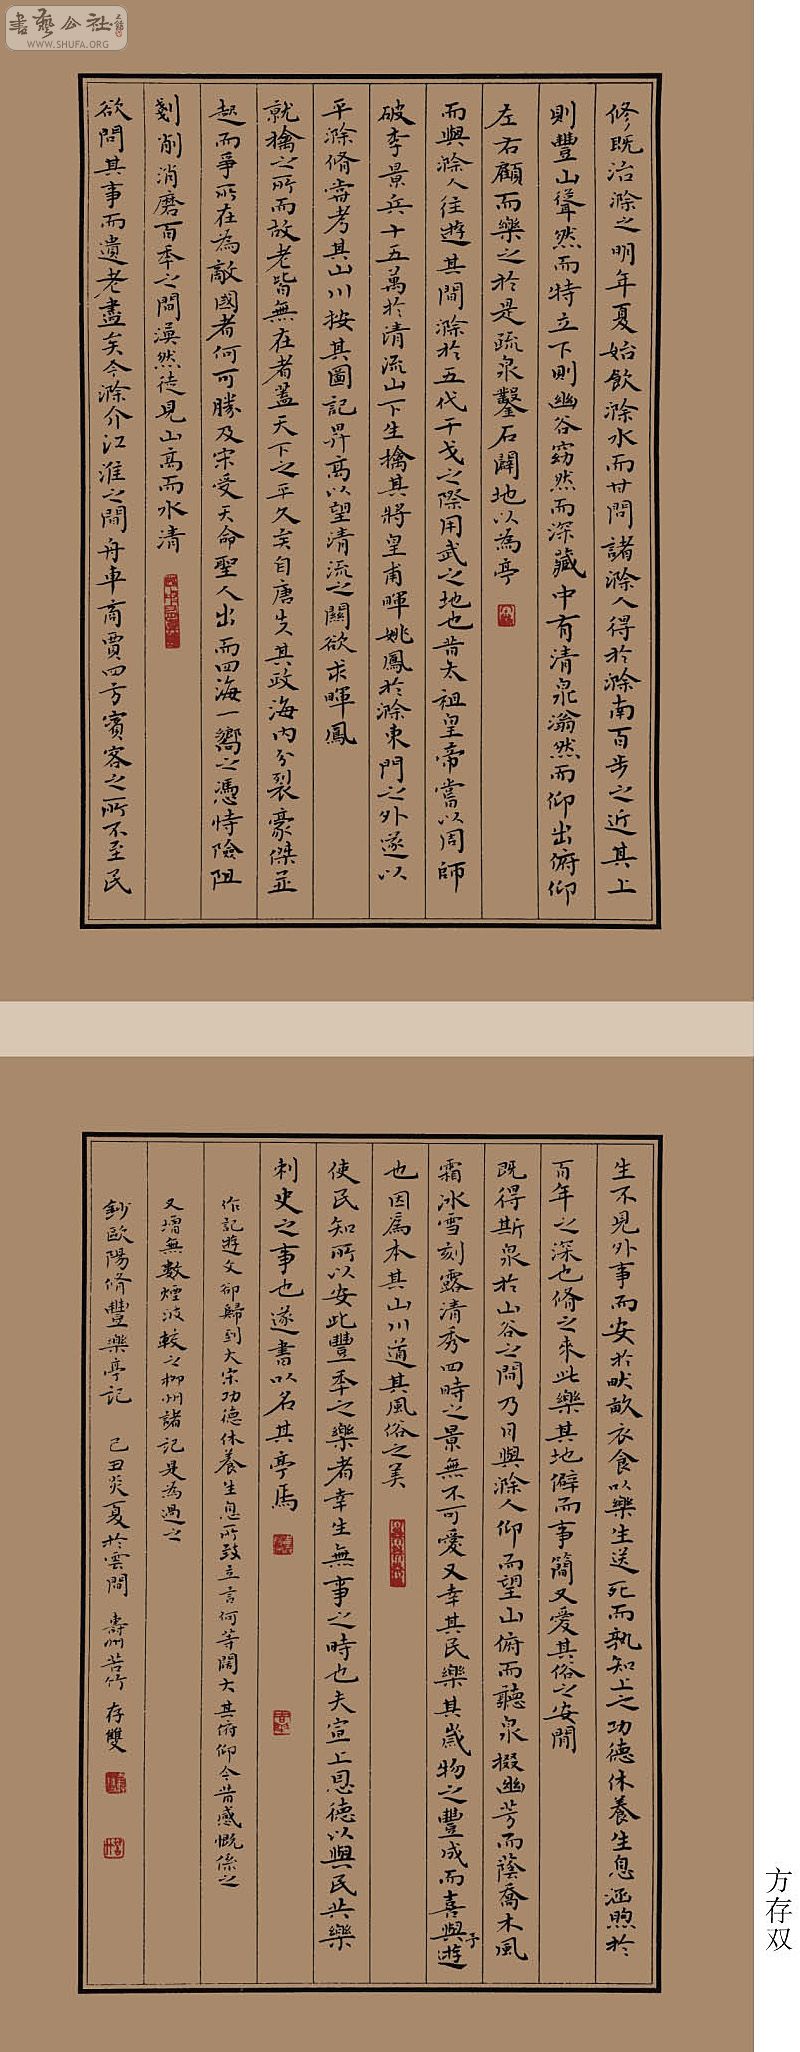 書藝公社
WWW.SHUFA.ORG
修既治滁之明年夏始飲滁水而甘問諸滁人得於滁南百步之近其上
則豐山聳然而特立下則幽谷窈然而深藏中有清泉滃然而仰出俯仰
左右顧而樂之於是疏泉鑿石闢地以為亭
而與滁人往遊其間滁於五代干戈之際用武之地也昔太祖皇帝嘗以周師
破李景兵十五萬於清流山下生擒其將皇甫暉姚鳳於滁東門之外遂以
平滁脩嘗考其山川按其圖記昇高以望清流之關欲求暉鳳
就擒之所而故老皆無在者蓋天下之平久矣自唐失其政海內分裂豪傑並
起而爭所在為敵國者何可勝及宋受天命聖人出而四海一嚮之憑恃險阻
剗削消磨百年之間漠然徒見山高而水清
欲問其事而遺老盡矣今滁介江淮之間舟車商賈四方賓客之所不至民
生不見外事而安於畎畝衣食以樂生送死而孰知上之功德休養生息涵煦於
百年之深也脩之來此樂其地僻而事簡又愛其俗之安閒
既得斯泉於山谷之間乃日與滁人仰而望山俯而聽泉掇幽芳而蔭喬木風
霜冰雪刻露清秀四時之景無不可愛又幸其民樂其歲物之豐成而喜與予遊
也因為本其山川道其風俗之美
使民知所以安此豐年之樂者幸生無事之時也夫宣上恩德以與民共樂
刺史之事也遂書以名其亭焉
作記遊文卻歸到大宋功德休養生息所致立言何等闊大其俯仰今昔感慨係之
又增無數煙波較之柳州諸記是為過之
鈔歐陽脩豐樂亭記 己丑炎夏於雲間 壽州苦竹 存雙
方存双